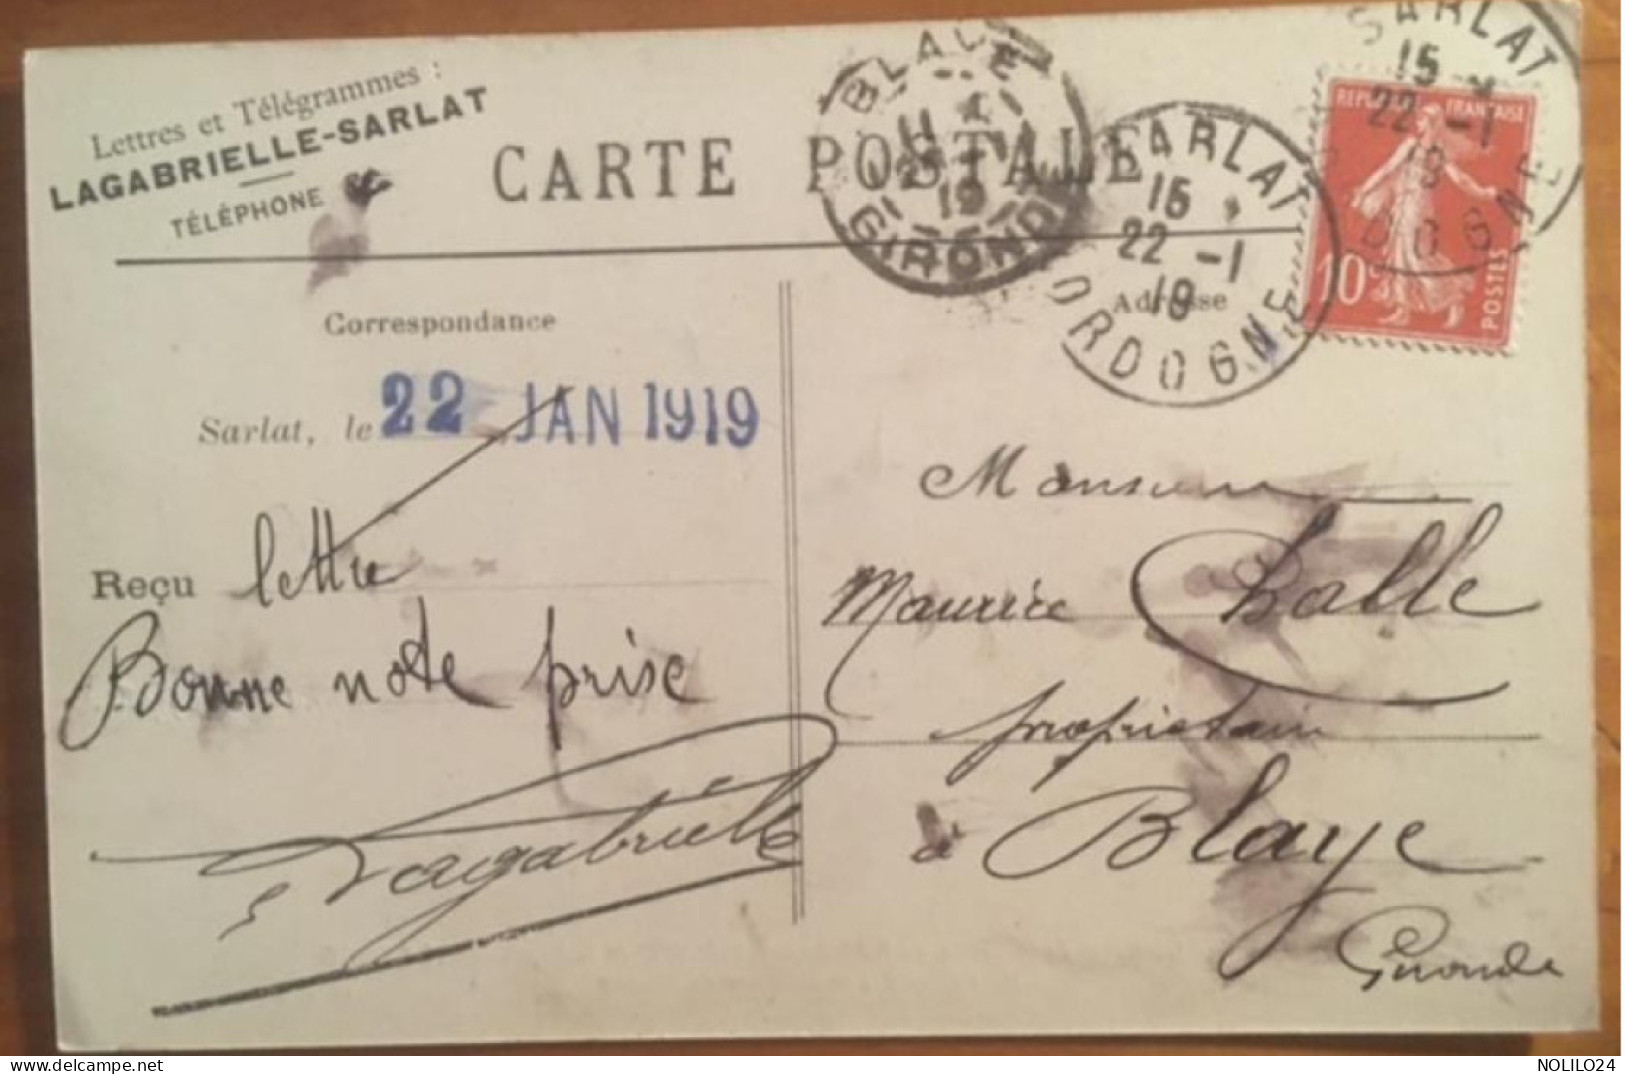 Lettres et Télégrammes :
LAGABRIELLE-SARLAT
TÉLÉPHONE
CARTE POSTALE
BLAYE
GIRONDE
SARLAT
15
22 -1
19
DORDOGNE
SARLAT
15
22 -1
19
DORDOGNE
REPUBLIQUE FRANÇAISE
10c
POSTES
Correspondance
Adresse
Sarlat, le 22 JAN 1919
Reçu lettre
Bonne note prise
Lagabrielle
Monsieur
Maurice
propriétaire
à Blaye
Gironde
NOLILO24